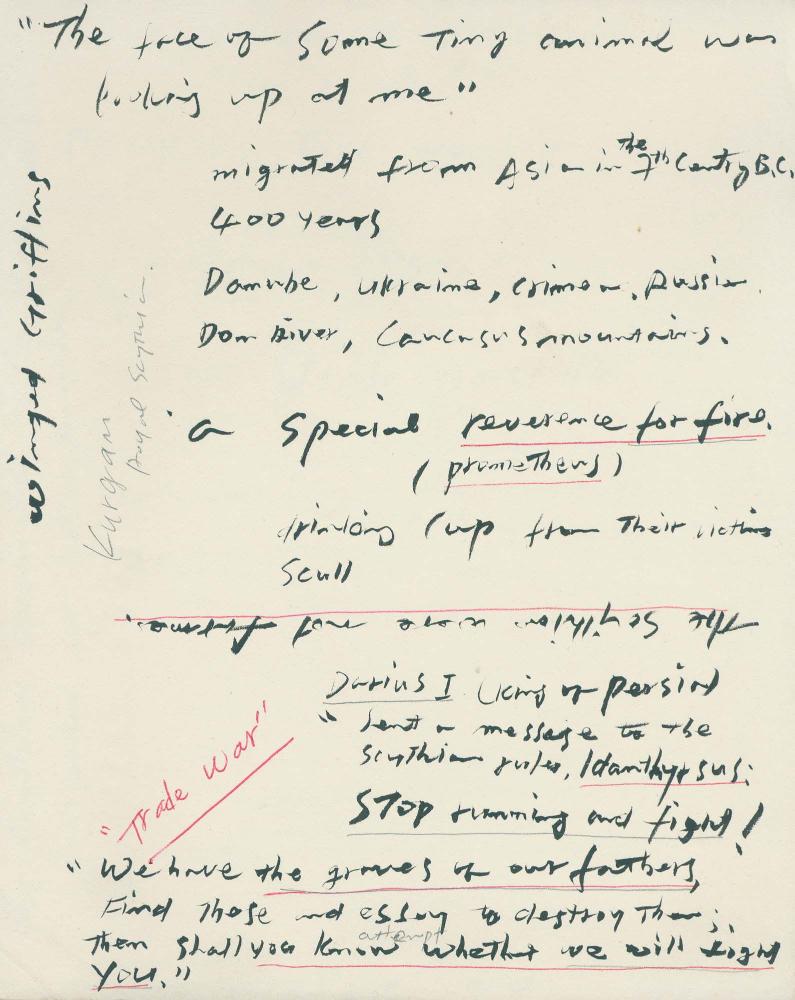 "The face of some tiny animal was
looking up at me"
migrated from Asia in the 7th Century B.C.
400 years
Danube, Ukraine, Crimea, Russia.
Don River, Caucasus mountains.
Winged Griffins
Kurgan
Royal Scythia.
a special reverence for fire.
(prometheus)
drinking cup from their victims
scull
The Scythian were not
Darius I (king of Persia)
"Sent a message to the
Scythian ruler, Idanthyrsus:
Stop running and fight!
"Trade War"
"We have the graves of our fathers,
Find those and essay to destroy them;
attempt
Then shall you know whether we will fight
you."